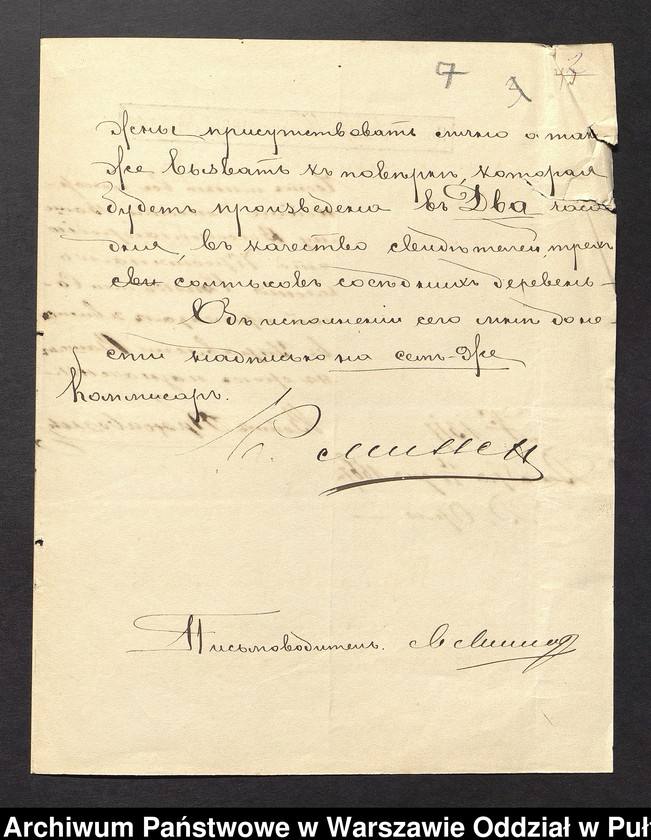 7 3
жны присутствовать лично а так
же вызвать къ повѣркѣ, которая
будетъ произведена въ Два часа
дня, въ качествѣ свидѣтелей, трехъ
солтысовъ сосѣднихъ деревень.
Въ исполненіи сего мнѣ доне-
сти надписью на семъ-же
Коммисаръ.
Письмоводитель.
Archiwum Państwowe w Warszawie Oddział w Puł